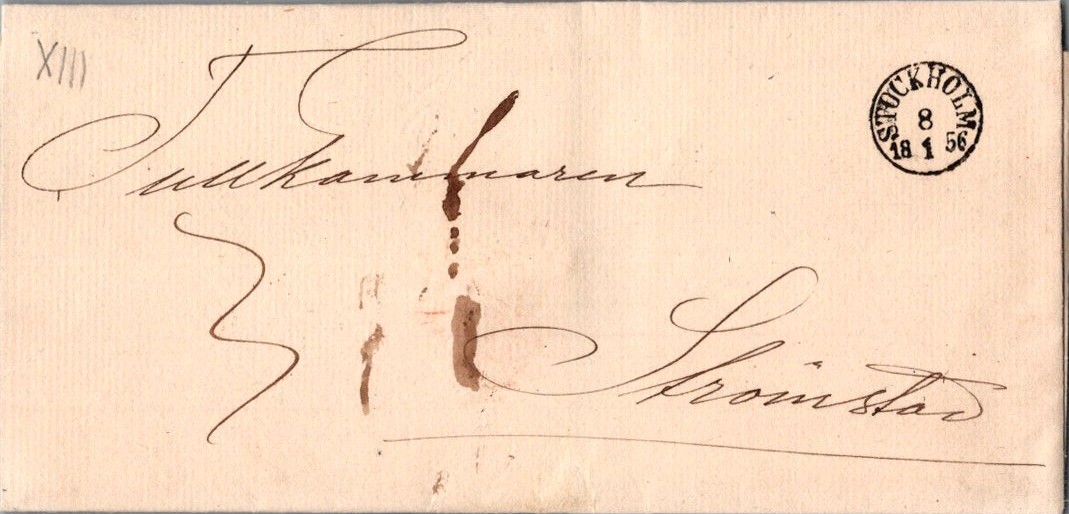 XIII
STOCKHOLM
8
18 1 56
Tullkammaren
Strömstad